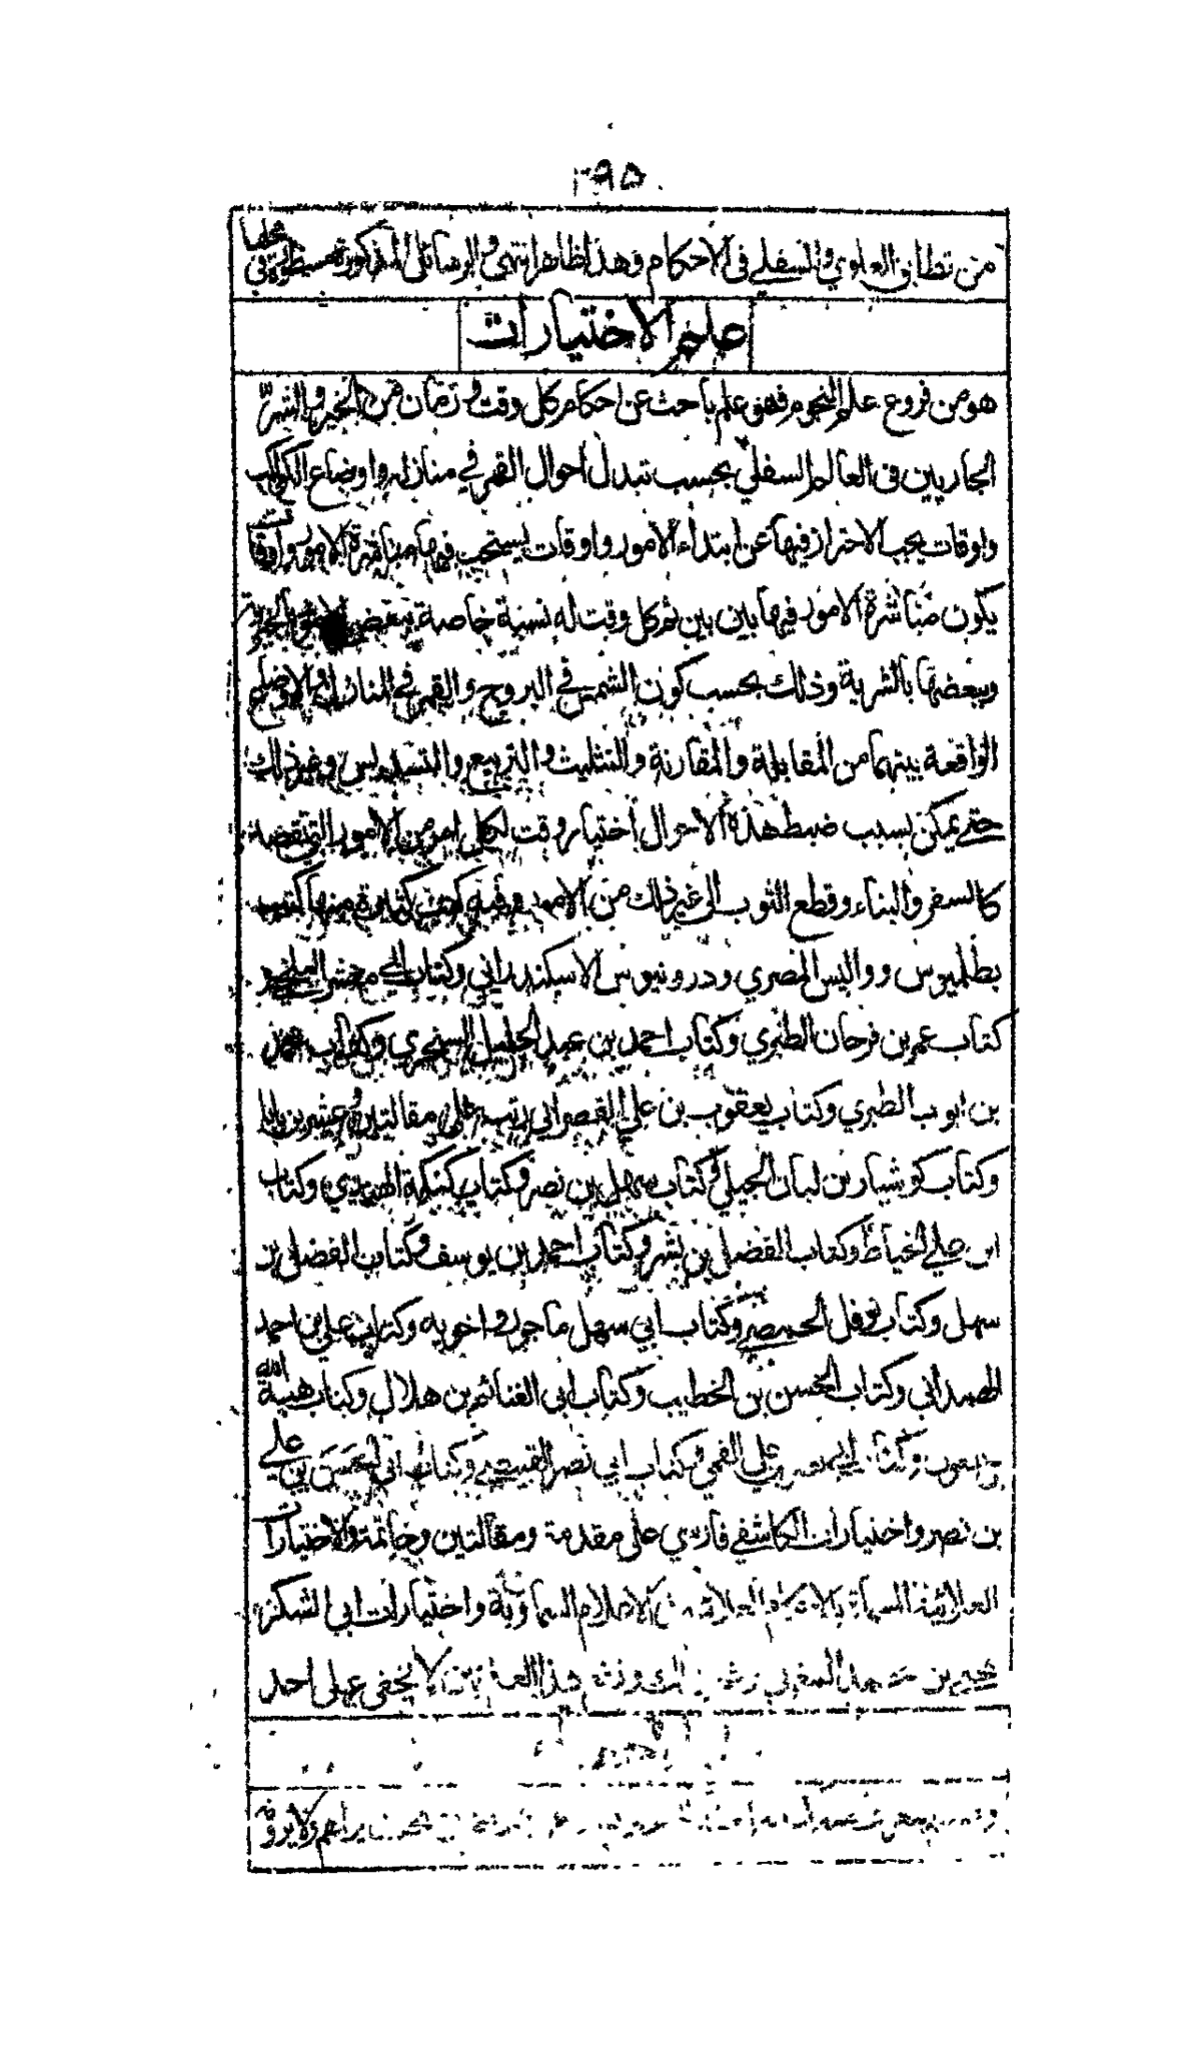 ٢٩٥
من تطابق العلوي والسفلي في الاحكام وهذا ظاهر انتهى والرسائل المذكورة مسطورة في محلها
علم الاختيارات
هو من فروع علم النجوم فهو علم باحث عن احكام كل وقت وزمان من الخير والشر
الجاريين في العالم السفلي بحسب تبدل احوال القمر في منازله واوضاع الكواكب
واوقات يجب الاحتراز فيها عن ابتداء الامور واوقات يستحب فيها مباشرة الامور واوقات
يكون مباشرة الامور فيها بين بين ثم كل وقت له نسبة خاصة ببعض الامور بالخيرية
وببعضها بالشرية وذلك بحسب كون الشمس في البروج والقمر في المنازل والاوضاع
الواقعة بينهما من المقابلة والمقارنة والتثليث والتربيع والتسديس وغير ذلك
حتى يمكن بسبب ضبط هذه الاحوال اختيار وقت لكل امر من الامور التي تقصد
كالسفر والبناء وقطع الثوب الى غير ذلك من الامور وفيه كتب كثيرة منها كتب
بطلميوس وواليس المصري ودرونيوس الاسكندراني وكتاب ابي معشر البلخي و
كتاب عمر بن فرحان الطبري وكتاب احمد بن عبد الجليل السنجري وكتاب محمد
بن ايوب الطبري وكتاب يعقوب بن علي القصراني رتب على مقالتين وعشرين بابا
وكتاب كوشيار بن لبان الجيلي وكتاب سهل بن نصر وكتاب كنكه الهندي وكتاب
ابن علي الخياط وكتاب الفضل بن بشر وكتاب احمد بن يوسف وكتاب الفضل بن
سهل وكتاب نوفل الحمصي وكتاب ابي سهل ماجور واخويه وكتاب علي بن احمد
الهمداني وكتاب الحسن بن الخطيب وكتاب ابي الغنائم بن هلال وكتاب هبة الله
بن وكتاب ابي علي القمي وكتاب ابي نصر القبيصي وكتاب ابي الحسن بن علي
بن نصر واختيارات الكاشفي فارسي على مقدمة ومقالتين وخاتمة والاختيارات
العلائية المسماة بالاحكام العلائية في الاعلام السماوية واختيارات ابي الشكر
يحيى بن محمد المغربي هذا العلم بين لا يخفى على احد